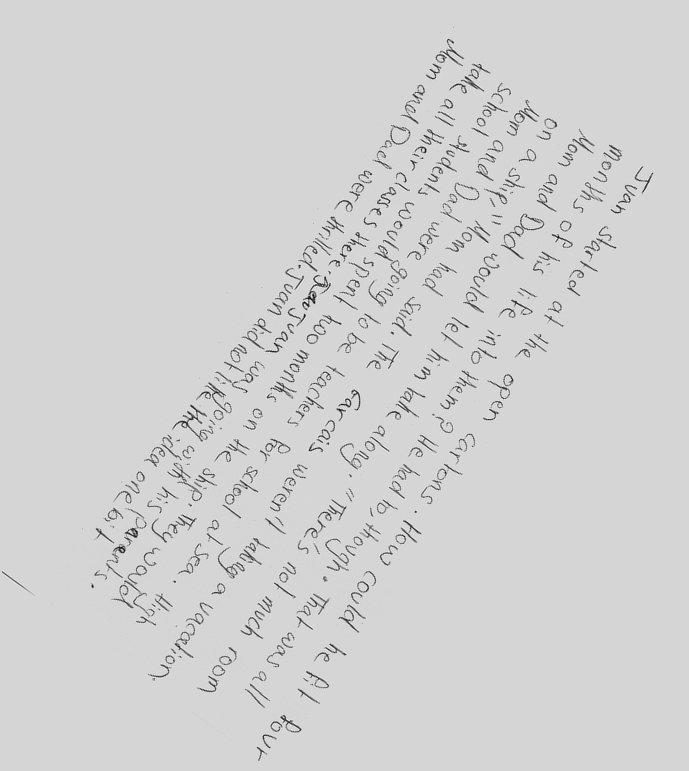 Juan started at the open cartons. How could he fit four
months of his life into them? He had to, though. That was all
Mom and Dad would let him take along. "There's not much room
on a ship," Mom had said. The Garcais weren't taking a vacation.
Mom and Dad were going to be teachers for school at sea. High
school students would spent two months on the ship. They would
take all their classes there. Juan was going with his parents.
Mom and Dad were thrilled. Juan did not like the idea one bit